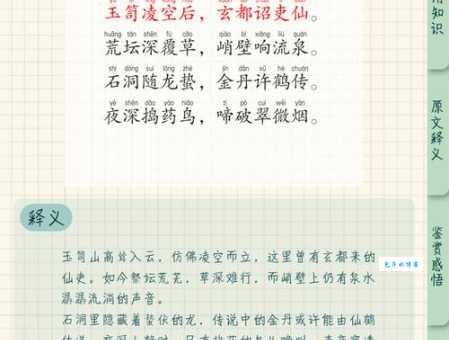 玉笥凌空后，玄都诏吏仙。
huāng tán shēn fù cǎo qiào bì xiǎng liú quán
荒坛深覆草，峭壁响流泉。
shí dòng suí lóng zhé jīn dān xǔ hè chuán
石洞随龙蛰，金丹许鹤传。
yè shēn dǎo yào niǎo tí pò cuì wēi yān
夜深捣药鸟，啼破翠微烟。
释义
玉笥山高耸入云，仿佛凌空而立，这里曾有玄都来的
仙吏。如今祭坛荒芜，草深难行，而峭壁上仍有泉水
潺潺流淌的声音。
石洞里隐藏着蛰伏的龙，传说中的金丹或许能由仙鹤
知识
原文释义
鉴赏感悟
包子的博客